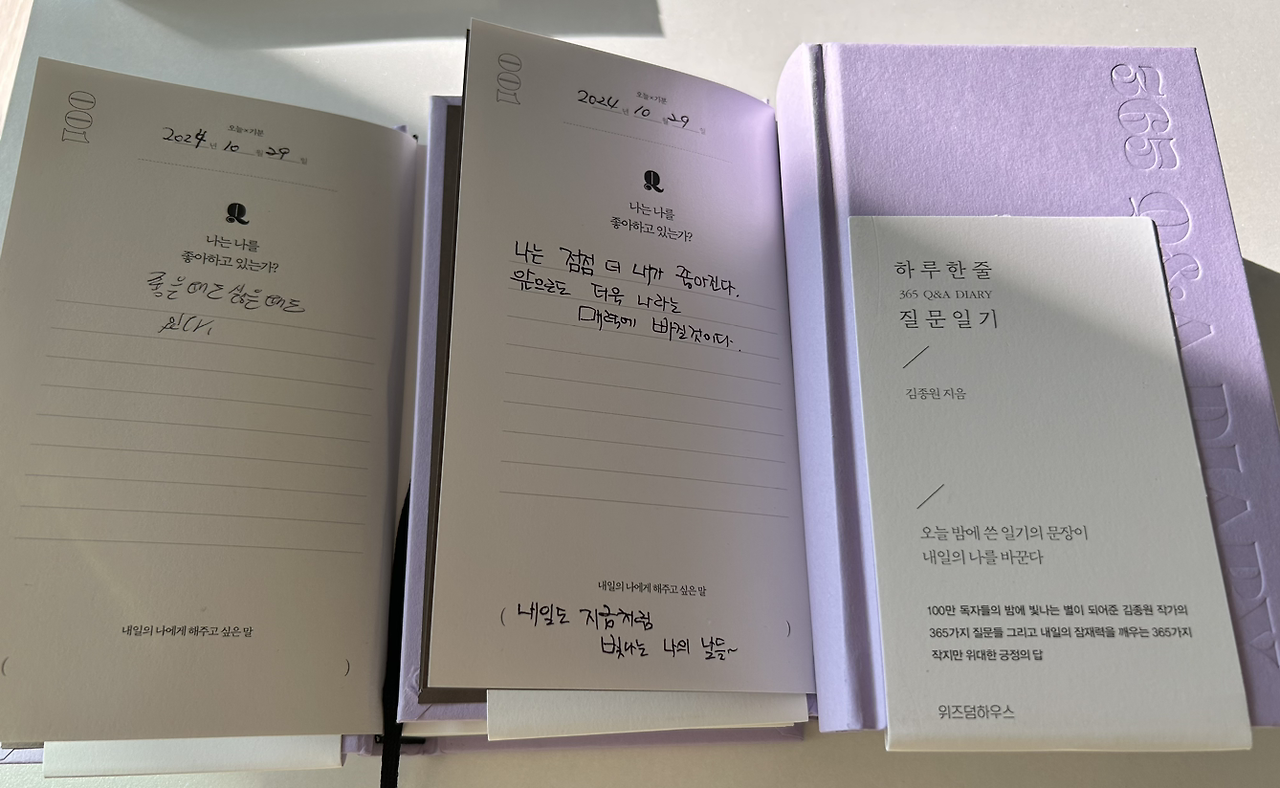 001
오늘×기분
2024년 10월 29일
Q
나는 나를
좋아하고 있는가?
좋을때도 싫을때도
있다.
내일의 나에게 해주고 싶은 말
( )
001
오늘×기분
2024년 10월 29일
Q
나는 나를
좋아하고 있는가?
나는 점점 더 내가 좋아진다.
앞으로도 더욱 나라는
매력에 빠질것이다.
내일의 나에게 해주고 싶은 말
( 내일도 지금처럼
빛나는 나의 날들~ )
365 Q&A DIARY
하루한줄
365 Q&A DIARY
질문일기
김종원 지음
오늘 밤에 쓴 일기의 문장이
내일의 나를 바꾼다
100만 독자들의 밤에 빛나는 별이 되어준 김종원 작가의
365가지 질문들 그리고 내일의 잠재력을 깨우는 365가지
작지만 위대한 긍정의 답
위즈덤하우스